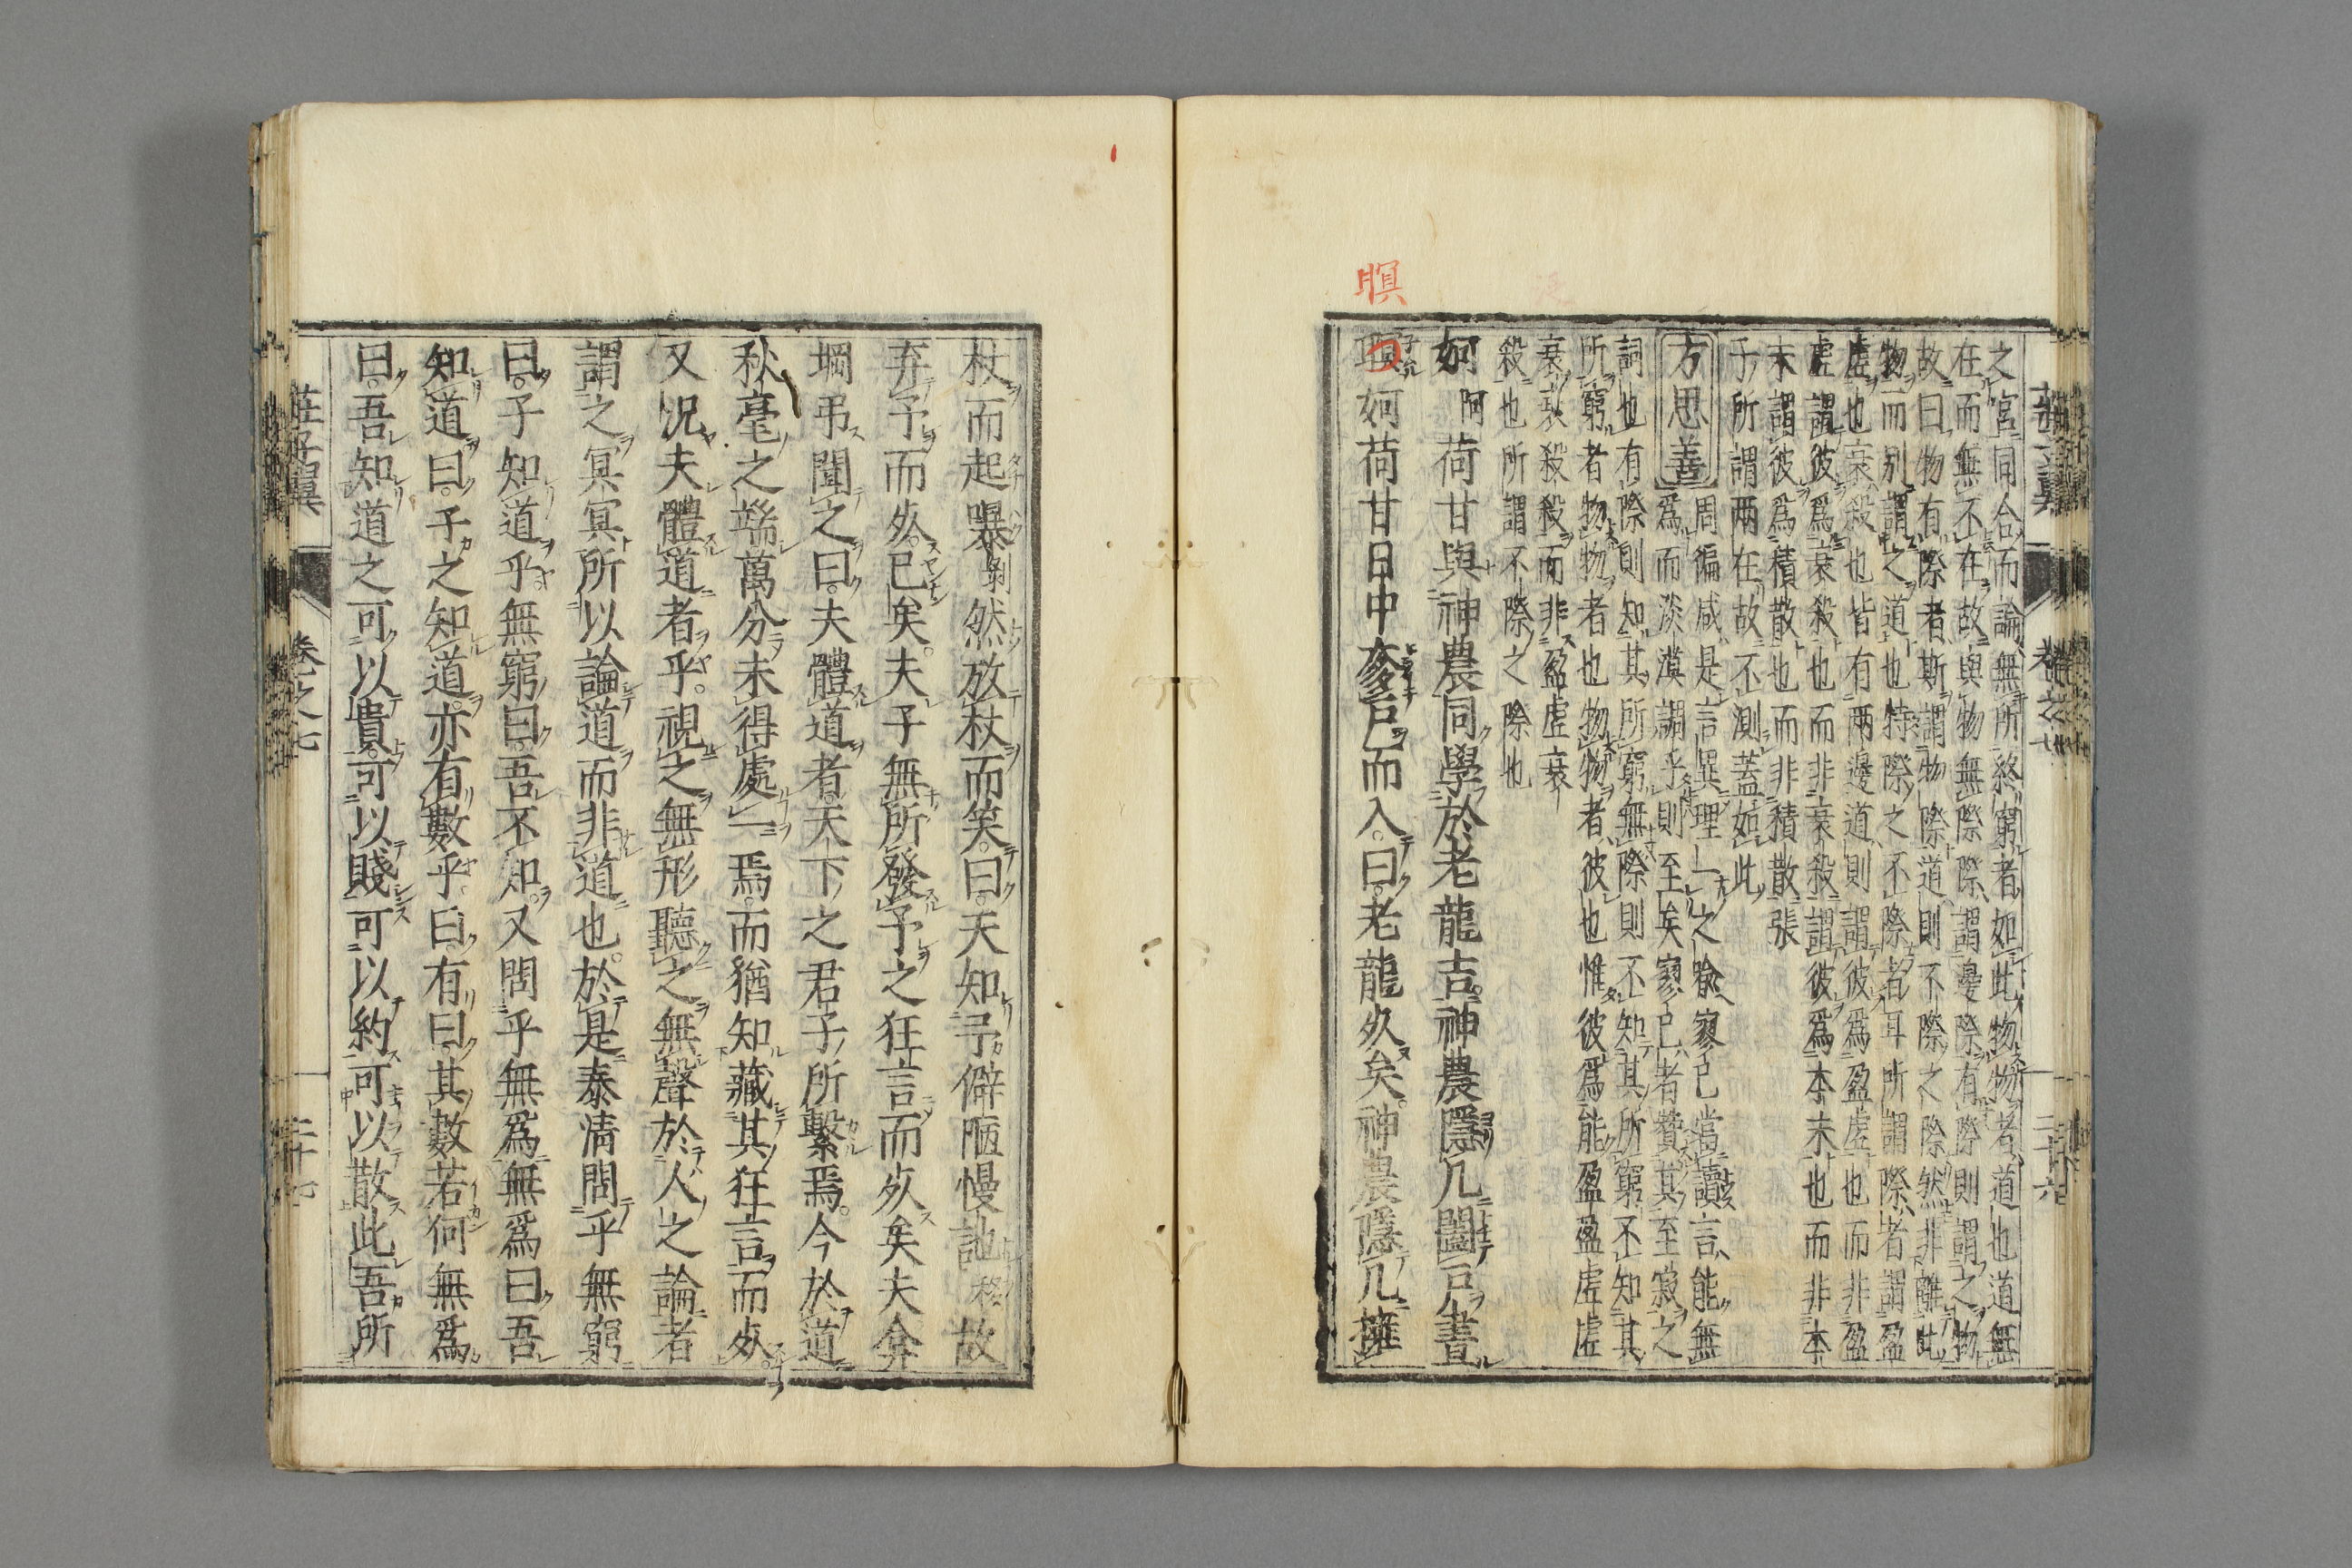 之宮同合而論、無所終窮者、如此、物物者、道也、道無
在而無不在、故與物無際、謂邊際、有際則謂之物
故曰、物有際者、斯謂物際、道則不際、之際然非離此
物而別謂之道也、特際之不際者耳、所謂際者、謂盈
虛也衰殺也、皆有兩邊道、則謂彼爲盈虛也而非盈
虛、謂彼爲衰殺也而非衰殺、謂彼爲本末也而非本
末、謂彼爲積散也而非積散、張
子所謂兩在故不測、蓋如此
方思善
周徧咸是言異理一之喻寥已當讀言、能無
爲而淡漠謂乎、則至矣寥已者贊其至寂之
詞也、有際則知其所窮、無際則不知其所窮、不知其
所窮者、物物者也、物物者、彼也惟彼爲能盈盈虛虛
衰衰殺殺而非盈虛衰
殺也所謂不際之際也
妸 阿 荷甘與神農同學於老龍吉。神農隱几闔戶晝
瞑
妸荷甘日中奓戶而入。曰。老龍死矣。神農隱几擁
莊子翼 卷之七 二十六
杖而起。曝剝然放杖而笑。曰。天知予僻陋慢訑 移 故
弃予而死。已矣。夫子無所發予之狂言而死矣夫。弇
堈弔聞之曰。夫體道者。天下之君子所繫焉。今於道
秋毫之端萬分未得處一焉。而猶知藏其狂言而死。
又況夫體道者乎。視之無形聽之無聲於人之論者
謂之冥冥所以論道而非道也。於是泰清問乎無窮
曰。子知道乎。無窮曰。吾不知。又問乎無爲無爲曰吾
知道。曰。子之知道。亦有數乎。曰。有。曰。其數若何無爲
曰。吾知道之可以貴。可以賤可以約可以散此吾所
莊子翼 卷之七 二十七